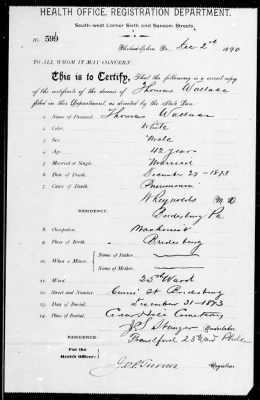 HEALTH OFFICE, REGISTRATION DEPARTMENT.
South-west Corner Sixth and Sansom Streets.
No. 599
Philadelphia, Pa. Dec 2nd 1890
TO ALL WHOM IT MAY CONCERN:
This is to Certify, That the following is a correct copy
of the certificate of the decease of Thomas Wallace
filed in this Department, as directed by the State Law.
1 Name of Deceased, Thomas Wallace
2 Color, White
3 Sex, Male
4 Age, 42 years
5 Married or Single, Married
6 Date of Death, December 29 - 1873
7 Cause of Death, Pneumonia
W Reynolds M.D.
RESIDENCE, Bridesburg Pa
8 Occupation, Machinist
9 Place of Birth, Bridesburg
10 When a Minor, Name of Father,
Name of Mother,
11 Ward, 25th Ward
12 Street and Number, St Bridesburg
13 Date of Burial, December 31 - 1873
14 Place of Burial, Cedar Hill Cemetery
Undertaker.
RESIDENCE, Frankford 23 Ward Phila
For the
Health Officer:
Registrar.